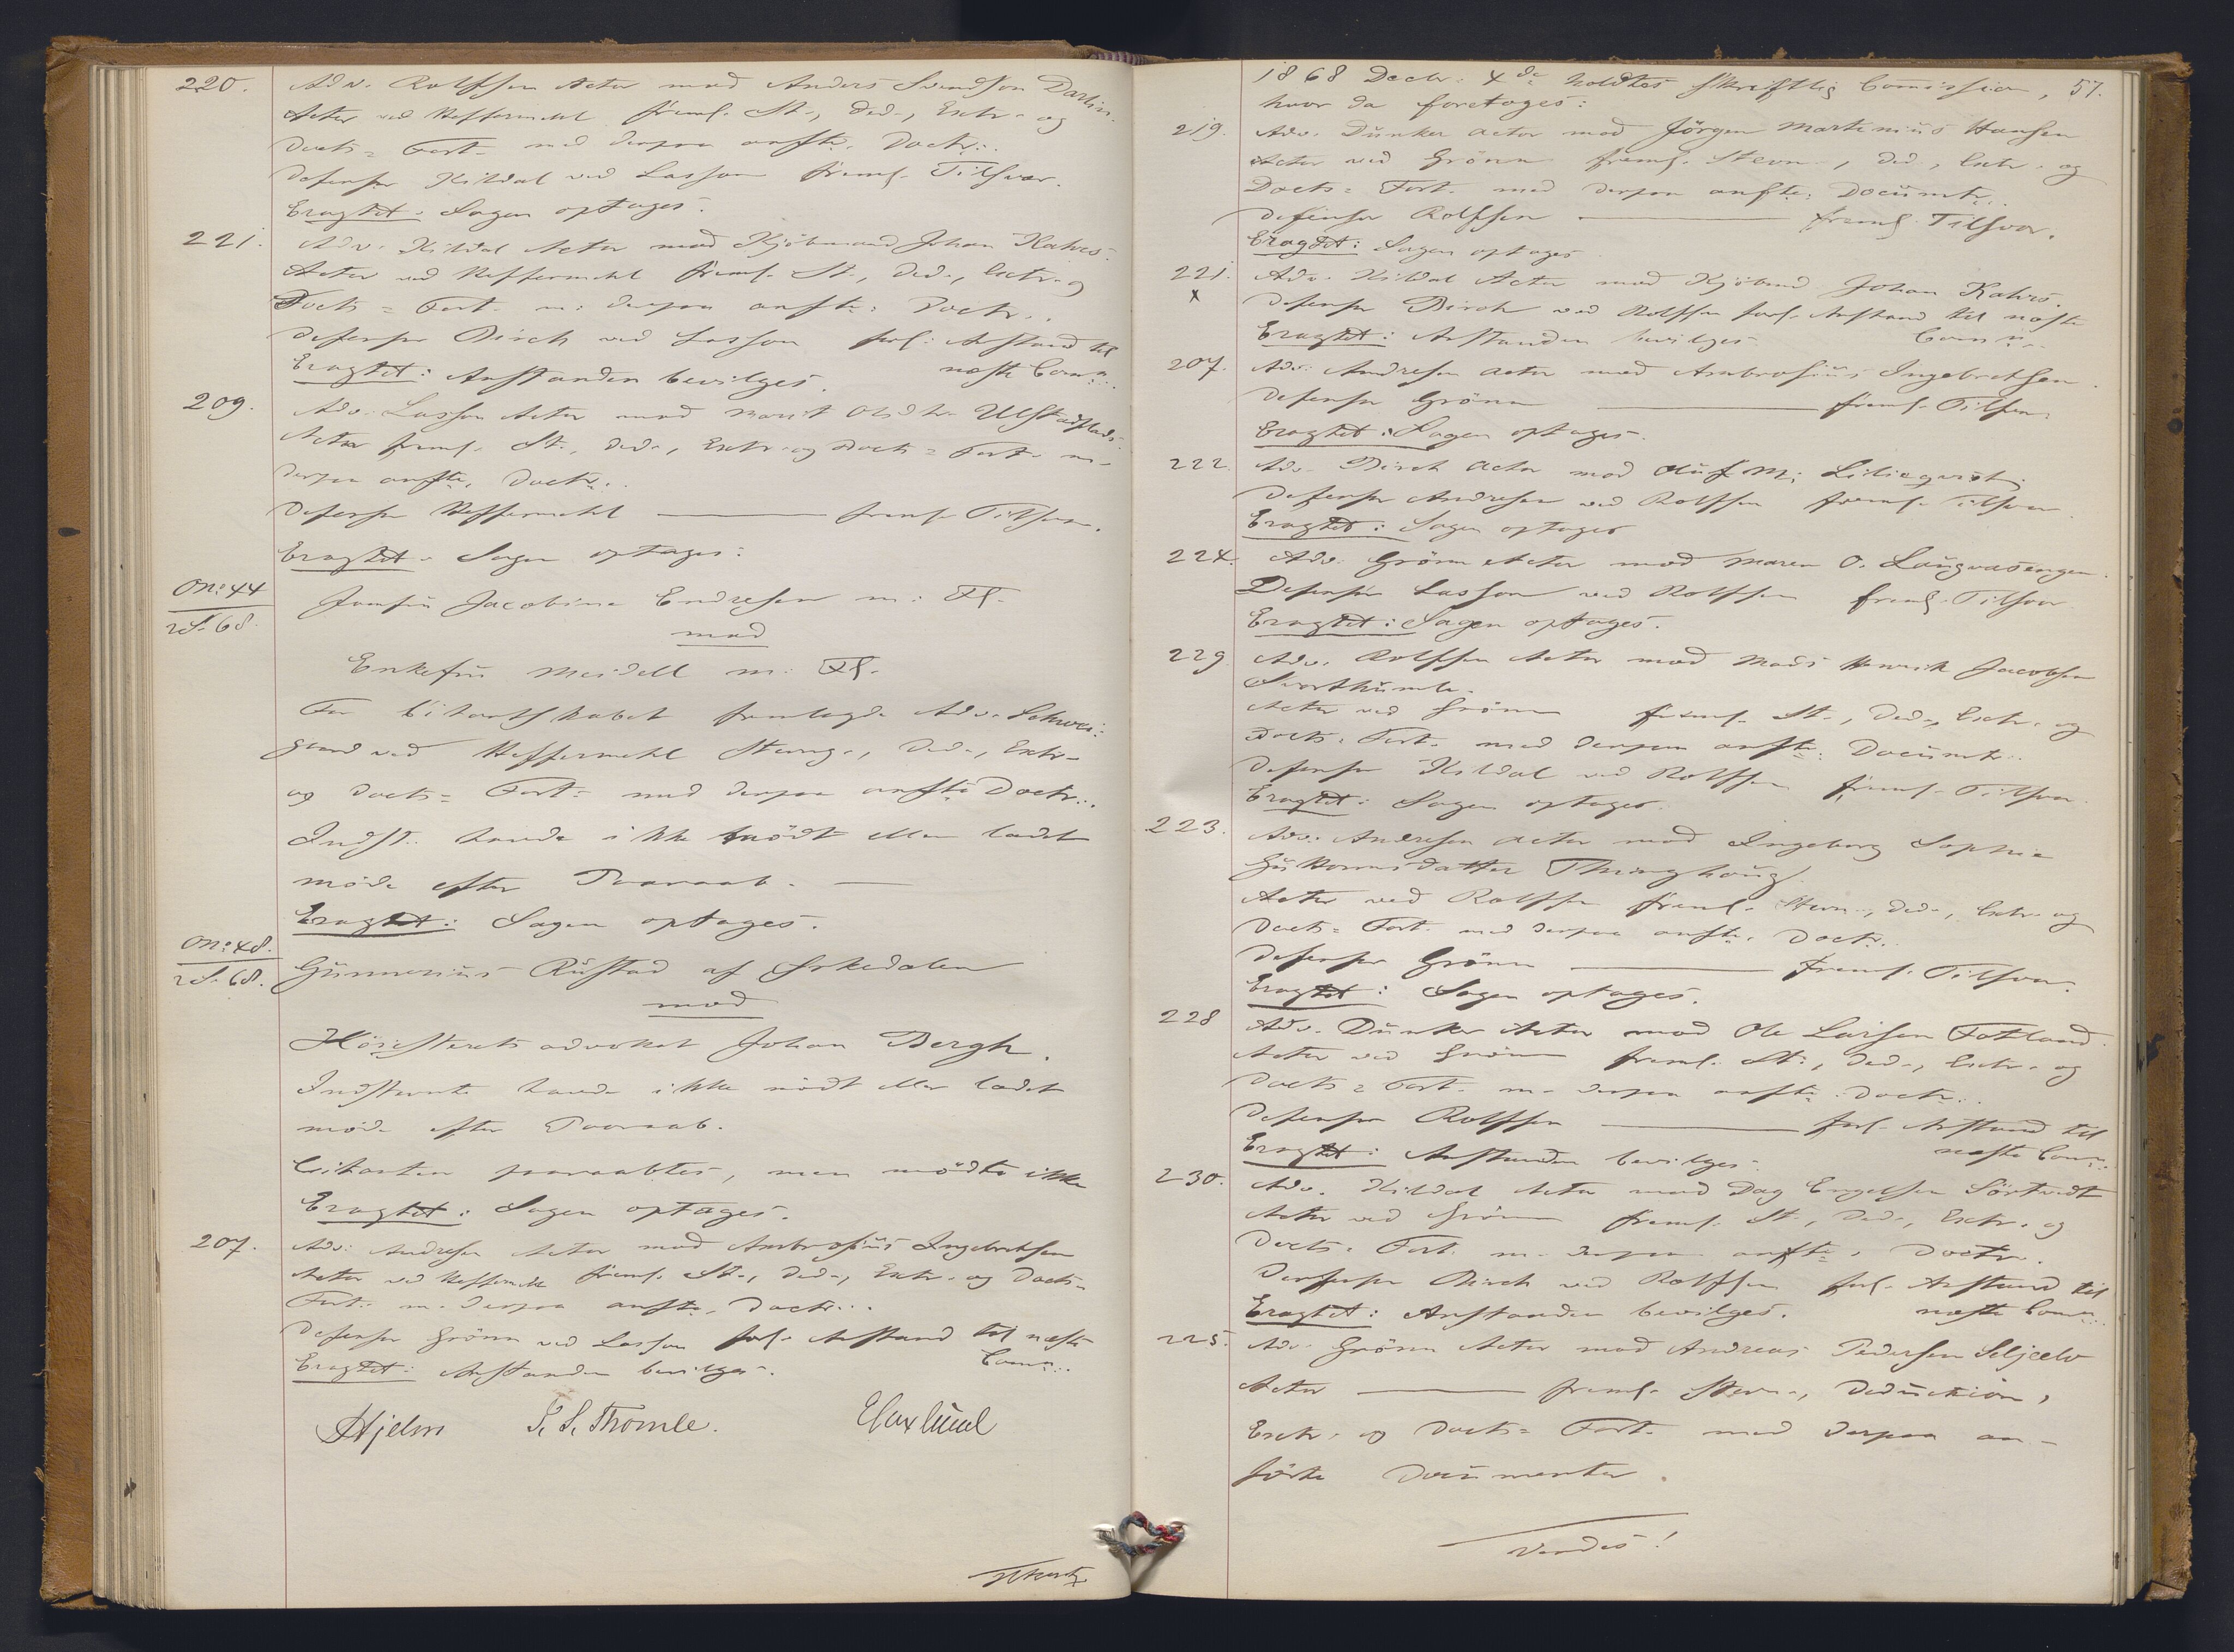 220. Adv. Rolffsen Actor mod Anders Svendsen Darbu.
Actor ved Heffermehl freml. St., Ded., Extr. og
Docts = Fort. med derpaa anfte. Doctr..
Defensor Kildal ved Lasson freml. Tilsvar.
Eragtet: Sagen optages.
221. Adv. Kildal Actor mod Kjöbmand Johan Kahrs.
Actor ved Heffermehl freml. St., Ded., Extr. og
Docts = Fort. m: derpaa anfte: Doctr..
Defensor Birch ved Lasson forl: Anstand til
Eragtet: Anstanden bevilges. næste Comn..
209. Adv. Lasson Actor mod Marit Olsdtr. Ulstadplads
Actor freml. St., Ded., Extr. og Docts = Fort. m.
derpaa anfte. Doctr..
Defensor Heffermehl ——— freml. Tilsvar.
Eragtet: Sagen optages:
No: 44
2 S. 68. Jomfru Jacobine Endresen m: Fl.
mod
Enkefru Meidell m: Fl.
For Citantskabet fremlagde Adv. Schwei-
gaard ved Heffermehl Stevng., Ded., Extr.
og Docts = Fort. med derpaa anfte Doctr..
Indst. havde ikke mödt eller ladet
möde efter Paaraab. —
Eragtet: Sagen optages.
No: 48.
2 S. 68. Gunnerius Rustad af Sørkedalen
mod
Höiesteretsadvokat Johan Bergh.
Indstevnte havde ikke mödt eller ladet
möde efter Paaraab.
Citanten paaraabtes, men mödte ikke
Eragtet: Sagen optages.
207. Adv: Andresen Actor mod Ambrosius Ingebretsen
Actor ved Heffermehl freml. St., Ded., Extr. og Docts =
Fort. m. derpaa anfte. Doctr..
Defensor Grönn ved Lasson forl. Anstand til næste
Eragtet: Anstanden bevilges. Comn..
Hjelm J. S. Thomle. E Caxlund
1868 Decbr: 4de holdtes skriftlig Comission, 57.
hvor da foretoges:
219. Adv. Dunker Actor mod Jörgen Martinius Hansen
Actor ved Grönn freml. Stevn., Ded., Extr. og
Docts = Fort. med derpaa anfte: Documtr..
Defensor Rolffsen ——— freml. Tilsvar.
Eragtet: Sagen optages
221. Adv. Kildal Actor mod Kjöbmd Johan Kahrs.
x Defensor Birch ved Rolffsen forl. Anstand til næste
Eragtet: Anstanden bevilges. Comn..
207. Adv: Andresen Actor mod Ambrosius Ingebretsen.
Defensor Grönn ——— freml. Tilsvar.
Eragtet: Sagen optages.
222. Adv. Birch Actor mod Oluf M. Liliequist.
Defensor Andresen ved Rolffsen freml. Tilsvar.
Eragtet: Sagen optages
224. Adv. Grönn Actor mod Maren O. Laugvasengen.
Defensor Lasson ved Rolffsen freml. Tilsvar.
Eragtet: Sagen optages.
229. Adv. Rolffsen Actor mod Mads Henrik Jacobsen
Svarthumle.
Actor ved Grönn freml. St., Ded., Extr. og
Docts = Fort. med derpaa anfte: Documtr..
Defensor Kildal ved Rolffsen freml. Tilsvar.
Eragtet: Sagen optages.
223. Adv: Andresen Actor mod Ingeborg Sophie
Guttormsdatter Thinghoug.
Actor ved Rolffsen freml. Stevn., Ded., Extr. og
Docts = Fort. med derpaa anfte. Doctr..
Defensor Grönn ——— freml. Tilsvar.
Eragtet: Sagen optages.
228 Adv. Dunker Actor mod Ole Larsen Fotland.
Actor ved Grönn freml. St:, Ded., Extr. og
Docts = Fort. m. derpaa anfte. Doctr..
Defensor Rolffsen ——— forl. Anstand til
Eragtet: Anstanden bevilges. næste Comn..
230. Adv. Kildal Actor mod Dag Engelsen Sörtvedt
Actor ved Grönn freml. St., Ded., Extr. og
Docts = Fort. m. derpaa anfte. Doctr.
Defensor Birch ved Rolffsen forl. Anstand til
Eragtet: Anstanden bevilges. næste Comn..
225. Adv. Grönn Actor mod Andreas Pedersen Seljeelv
Actor ——— freml. Stevn., Deduction,
Extr. og Docts = Fort. med derpaa an-
förte Documenter.
Vendes!